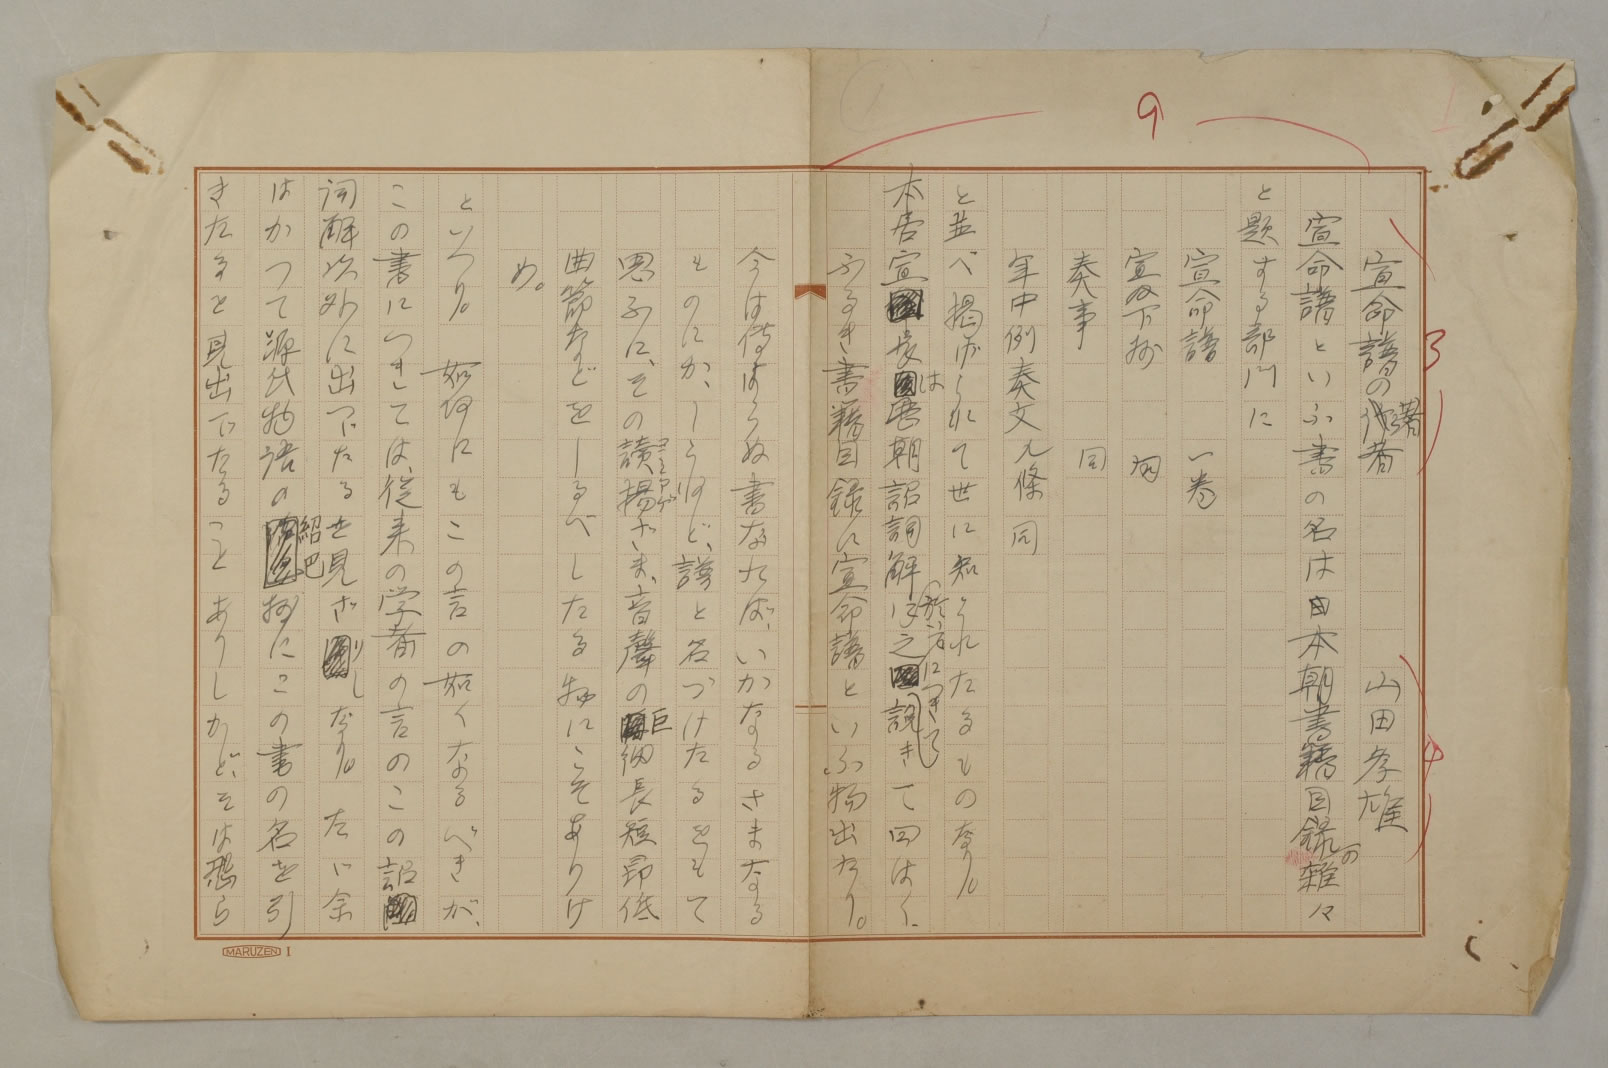 宣命譜の著者
山田孝雄
宣命譜といふ書の名は本朝書籍目録の雑々
と題する部門に
宣命譜 一巻
宣及下抄 同
奏事 同
年中例奏文 九條 同
と並べ掲げられて世に知られたるものなり。
本居宣長は歴朝詔詞解に於いて之につきて曰はく、
ふるき書籍目録に宣命譜といふ物出たり。
今は傳はらぬ書なれば、いかなるさまなる
ものにか、しらねど、譜と名づけたるをもて
思ふに、その讀揚ざま、音聲の巨細長短昂低
ヨミアゲ
曲節などをしるべしたる物にこそありけ
め。
といへり。 如何にもこの言の如くなるべきが、
この書につきては、従来の学者の言のこの詔
詞解以外に出でたるを見ざりしなり。 たゞ余
はかつて源氏物語の紹巴抄にこの書の名を引
きたるを見出でたることありしかど、そは恐ら
9
3
4
1
MARUZEN I